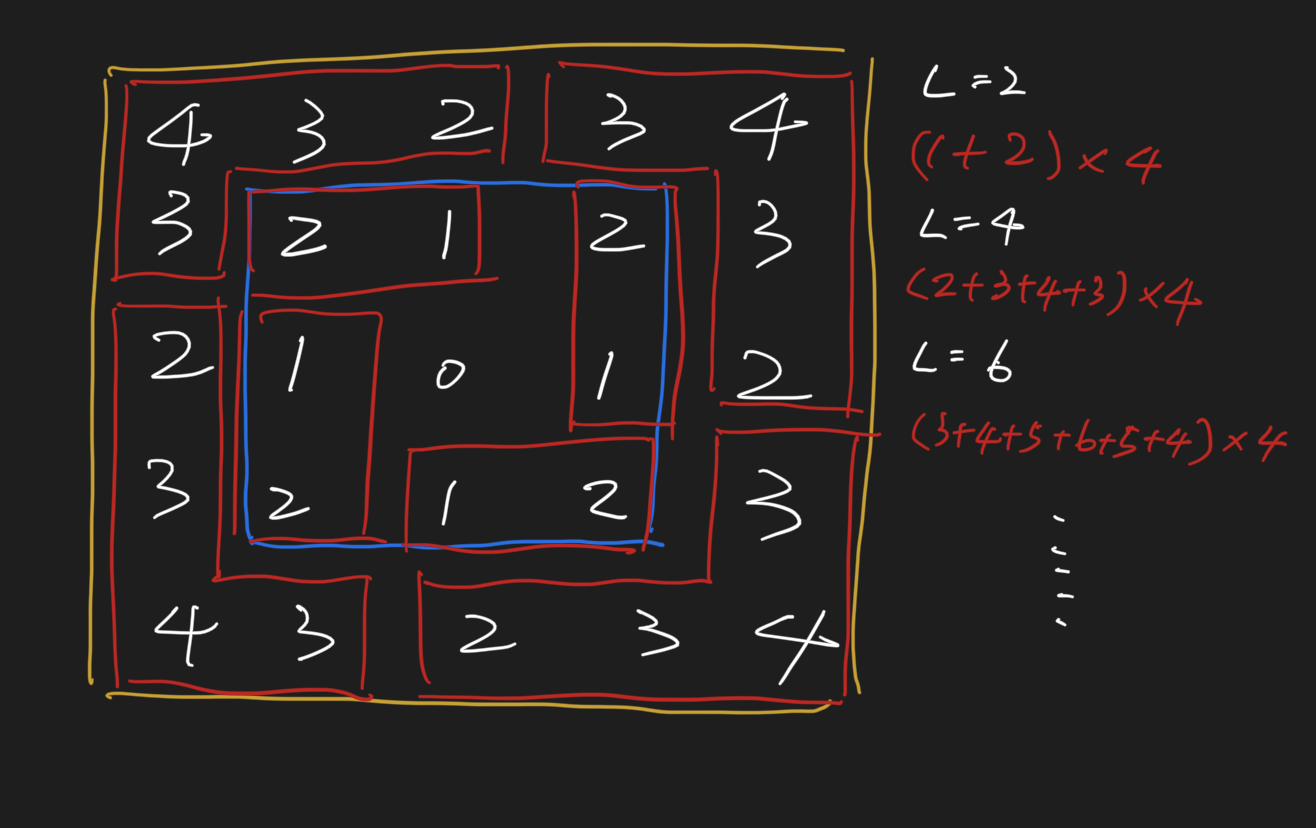 4 3 2 3 4
3 2 1 2 3
2 1 0 1 2
3 2 1 2 3
4 3 2 3 4
L=2
(1+2)×4
L=4
(2+3+4+3)×4
L=6
(3+4+5+6+5+4)×4